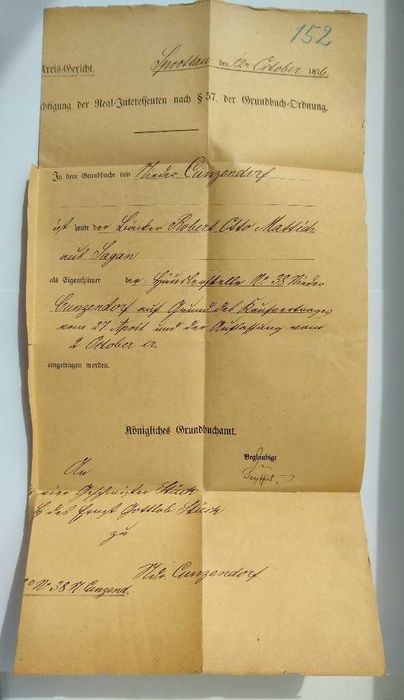 152
Kreis-Gericht. Sprottau den 12 October 1876.
htigung der Real-Interessenten nach § 57. der Grundbuch-Ordnung.
In dem Grundbuche von Nieder Cunzendorf
ist heute der Bäcker Robert Otto Mattich
aus Sagan
als Eigenthümer der Häuslerstelle No 38 Nieder
Cunzendorf auf Grund des Kaufvertrages
vom 27. April und der Auflassung vom
2 October cr.
eingetragen worden.
Königliches Grundbuchamt.
Beglaubigt
An
vier Geschwister Stück
des Ernst Gottlob Stück
zu
Ndr. Cunzendorf
No 38 N Cunzend.